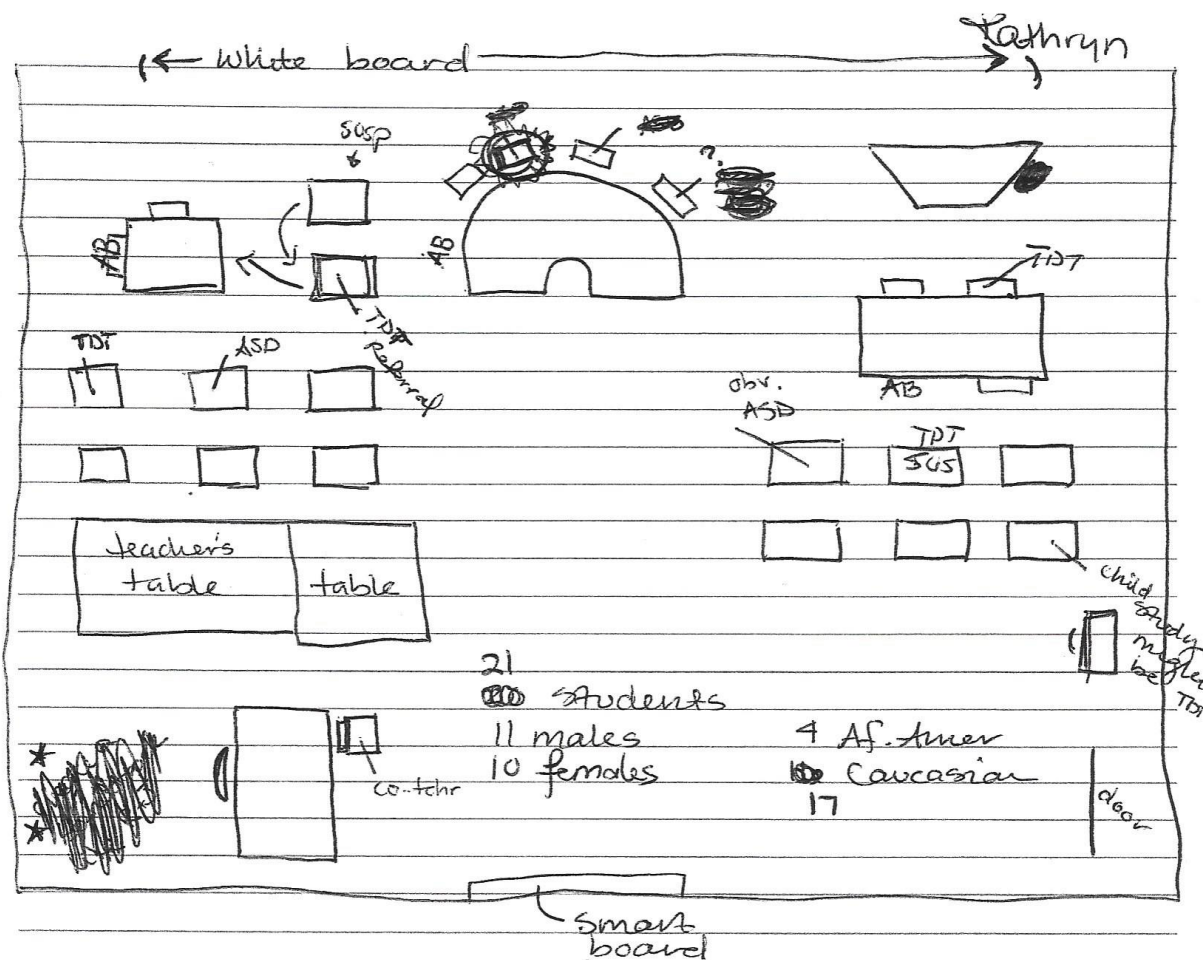 Kathryn
White board
susp
?
AB
AB
TDT
TDT
Referral
TDT
ASD
AB
obv.
ASD
TDT
sus
teacher's
table
table
child
study
might
be
TDT
21
students
11 males
10 females
4 Af. Amer
Caucasian
17
co-tchr
door
Smart
board